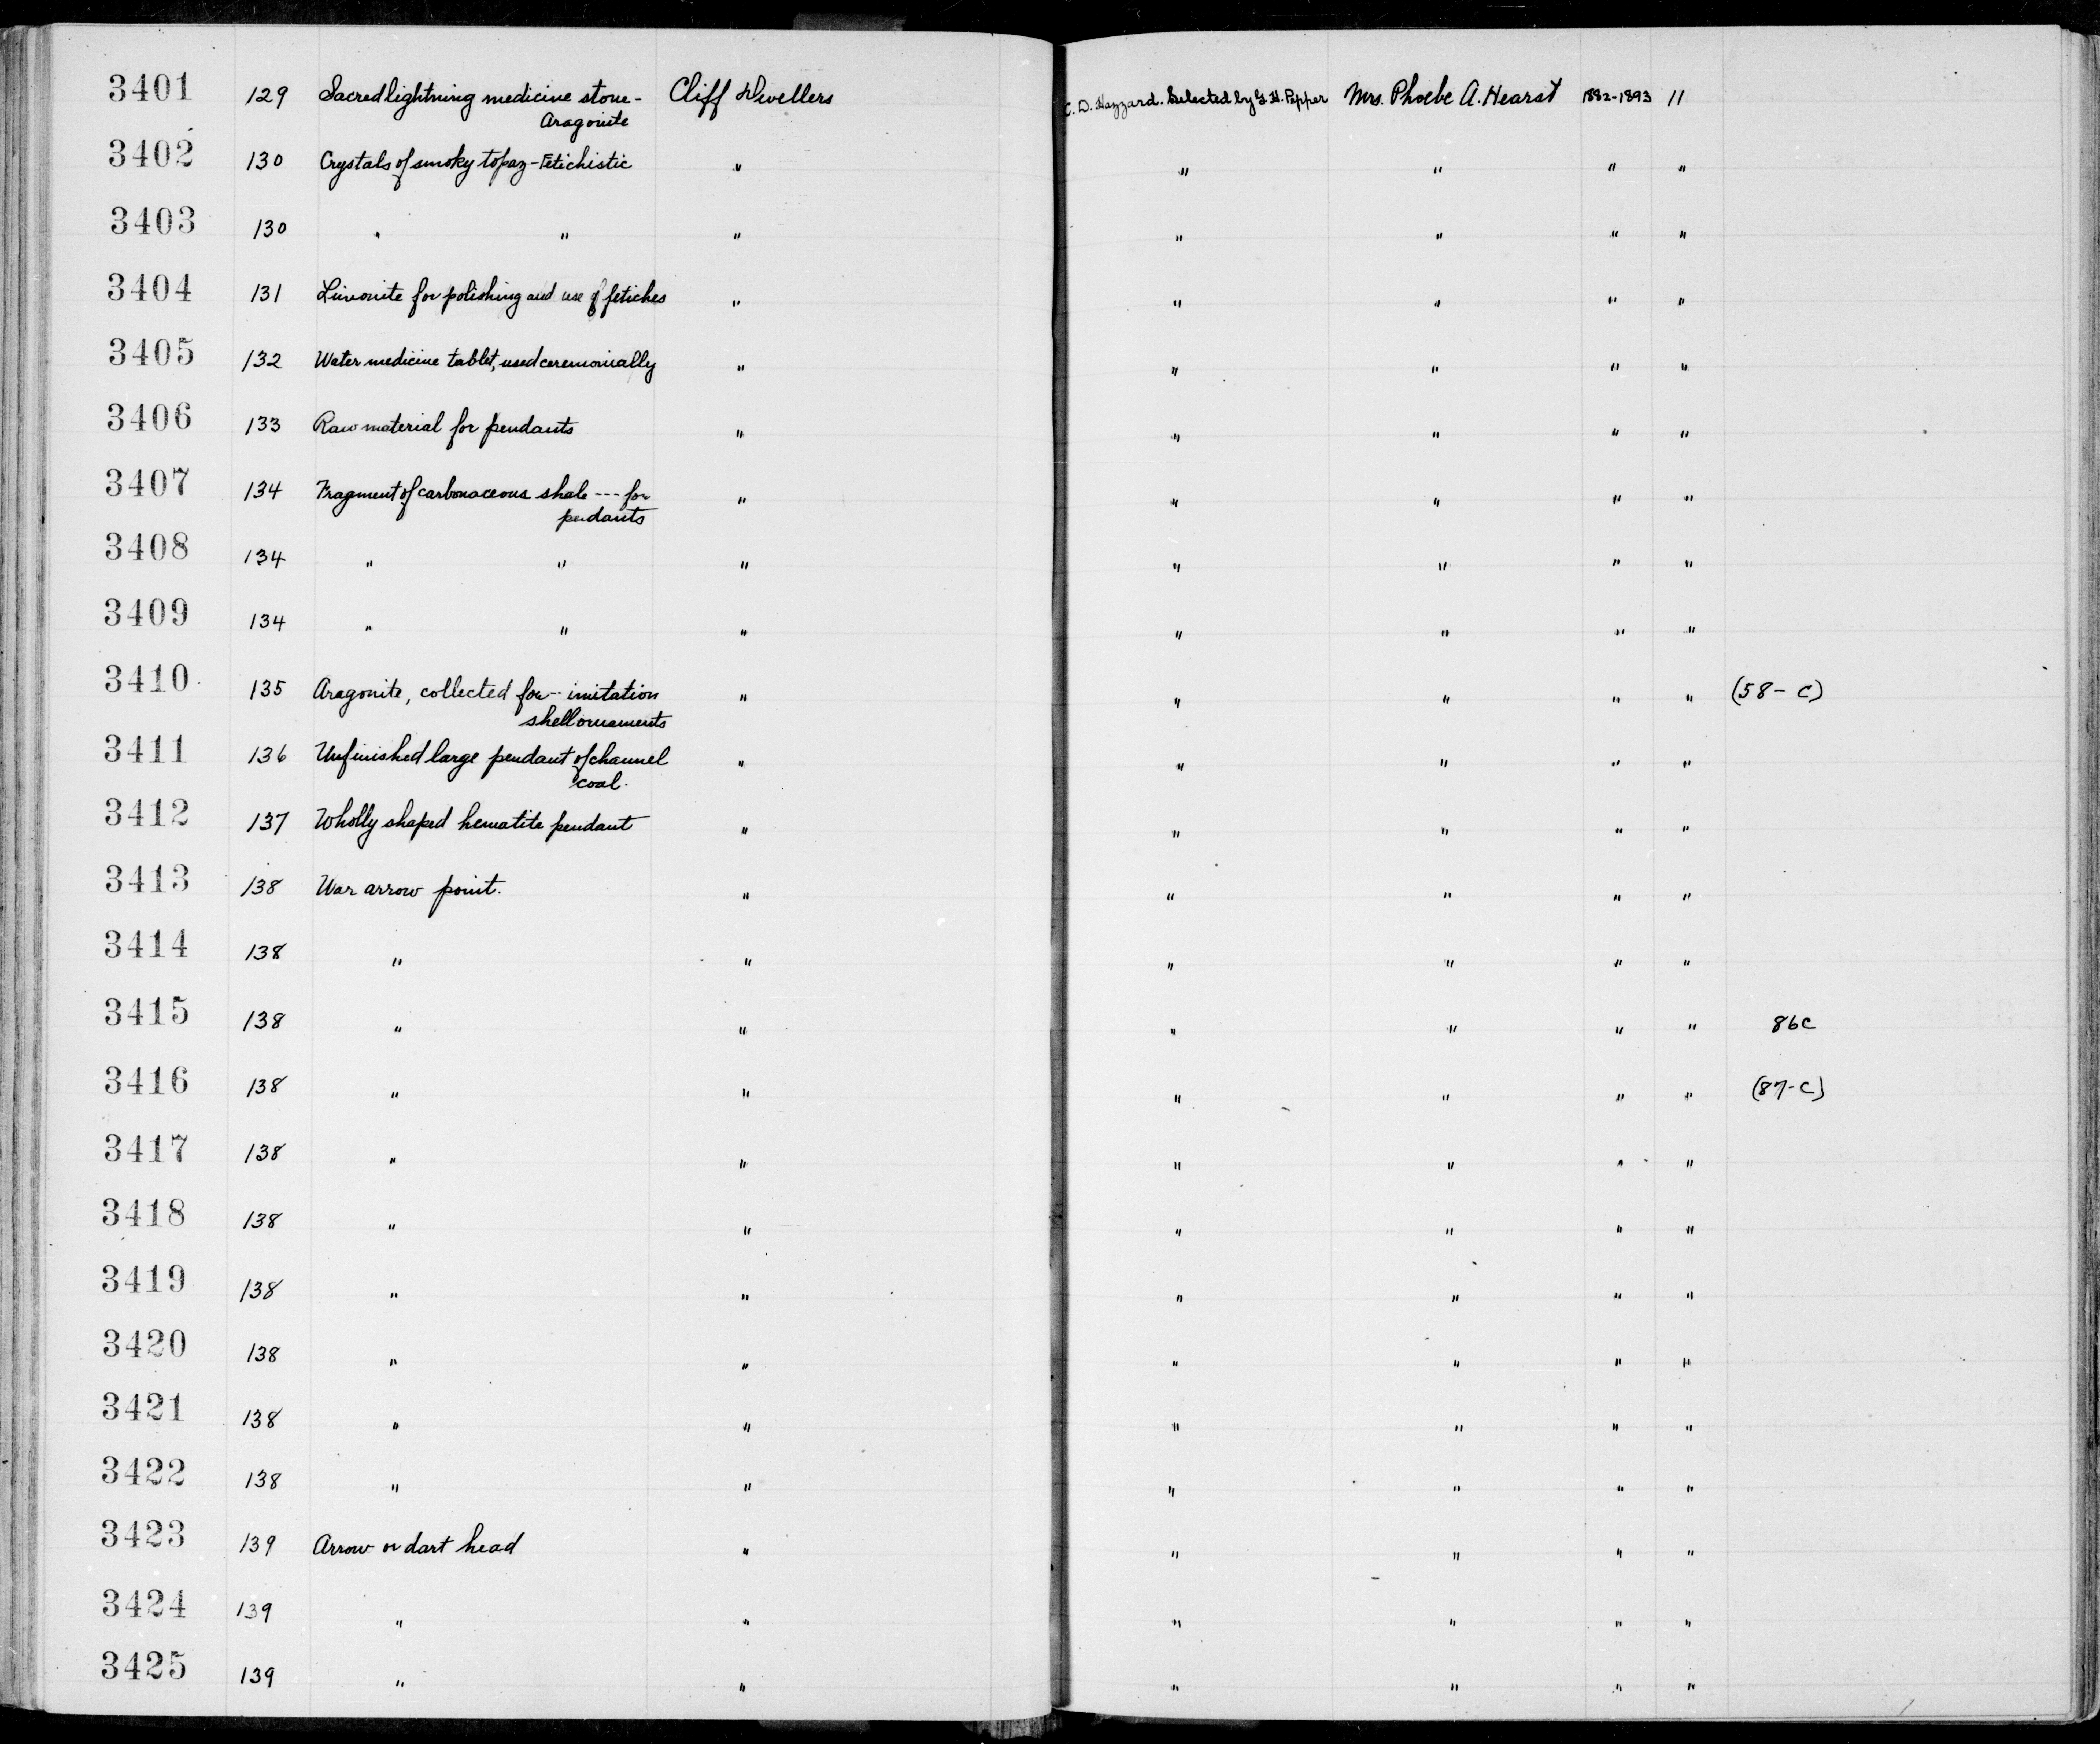 3401 129 Sacred lightning medicine stone- Cliff Dwellers C. D. Hazzard. Selected by G. H. Pepper Mrs. Phoebe A. Hearst 1882-1893 11
Aragonite
3402 130 Crystals of smoky topaz-Fetichistic " " " " "
3403 130 " " " " " " "
3404 131 Limonite for polishing and use of fetiches " " " " "
3405 132 Water medicine tablet, used ceremonially " " " " "
3406 133 Raw material for pendants " " " " "
3407 134 Fragment of carbonaceous shale --- for " " " " "
pendants
3408 134 " " " " " " "
3409 134 " " " " " " "
3410 135 Aragonite, collected for -- imitation " " " " " (58-C)
shell ornaments
3411 136 Unfinished large pendant of channel " " " " "
coal.
3412 137 Wholly shaped hematite pendant " " " " "
3413 138 War arrow point. " " " " "
3414 138 " " " " " "
3415 138 " " " " " " 86C
3416 138 " " " " " " (87-C)
3417 138 " " " " " "
3418 138 " " " " " "
3419 138 " " " " " "
3420 138 " " " " " "
3421 138 " " " " " "
3422 138 " " " " " "
3423 139 Arrow or dart head " " " " "
3424 139 " " " " " "
3425 139 " " " " " "